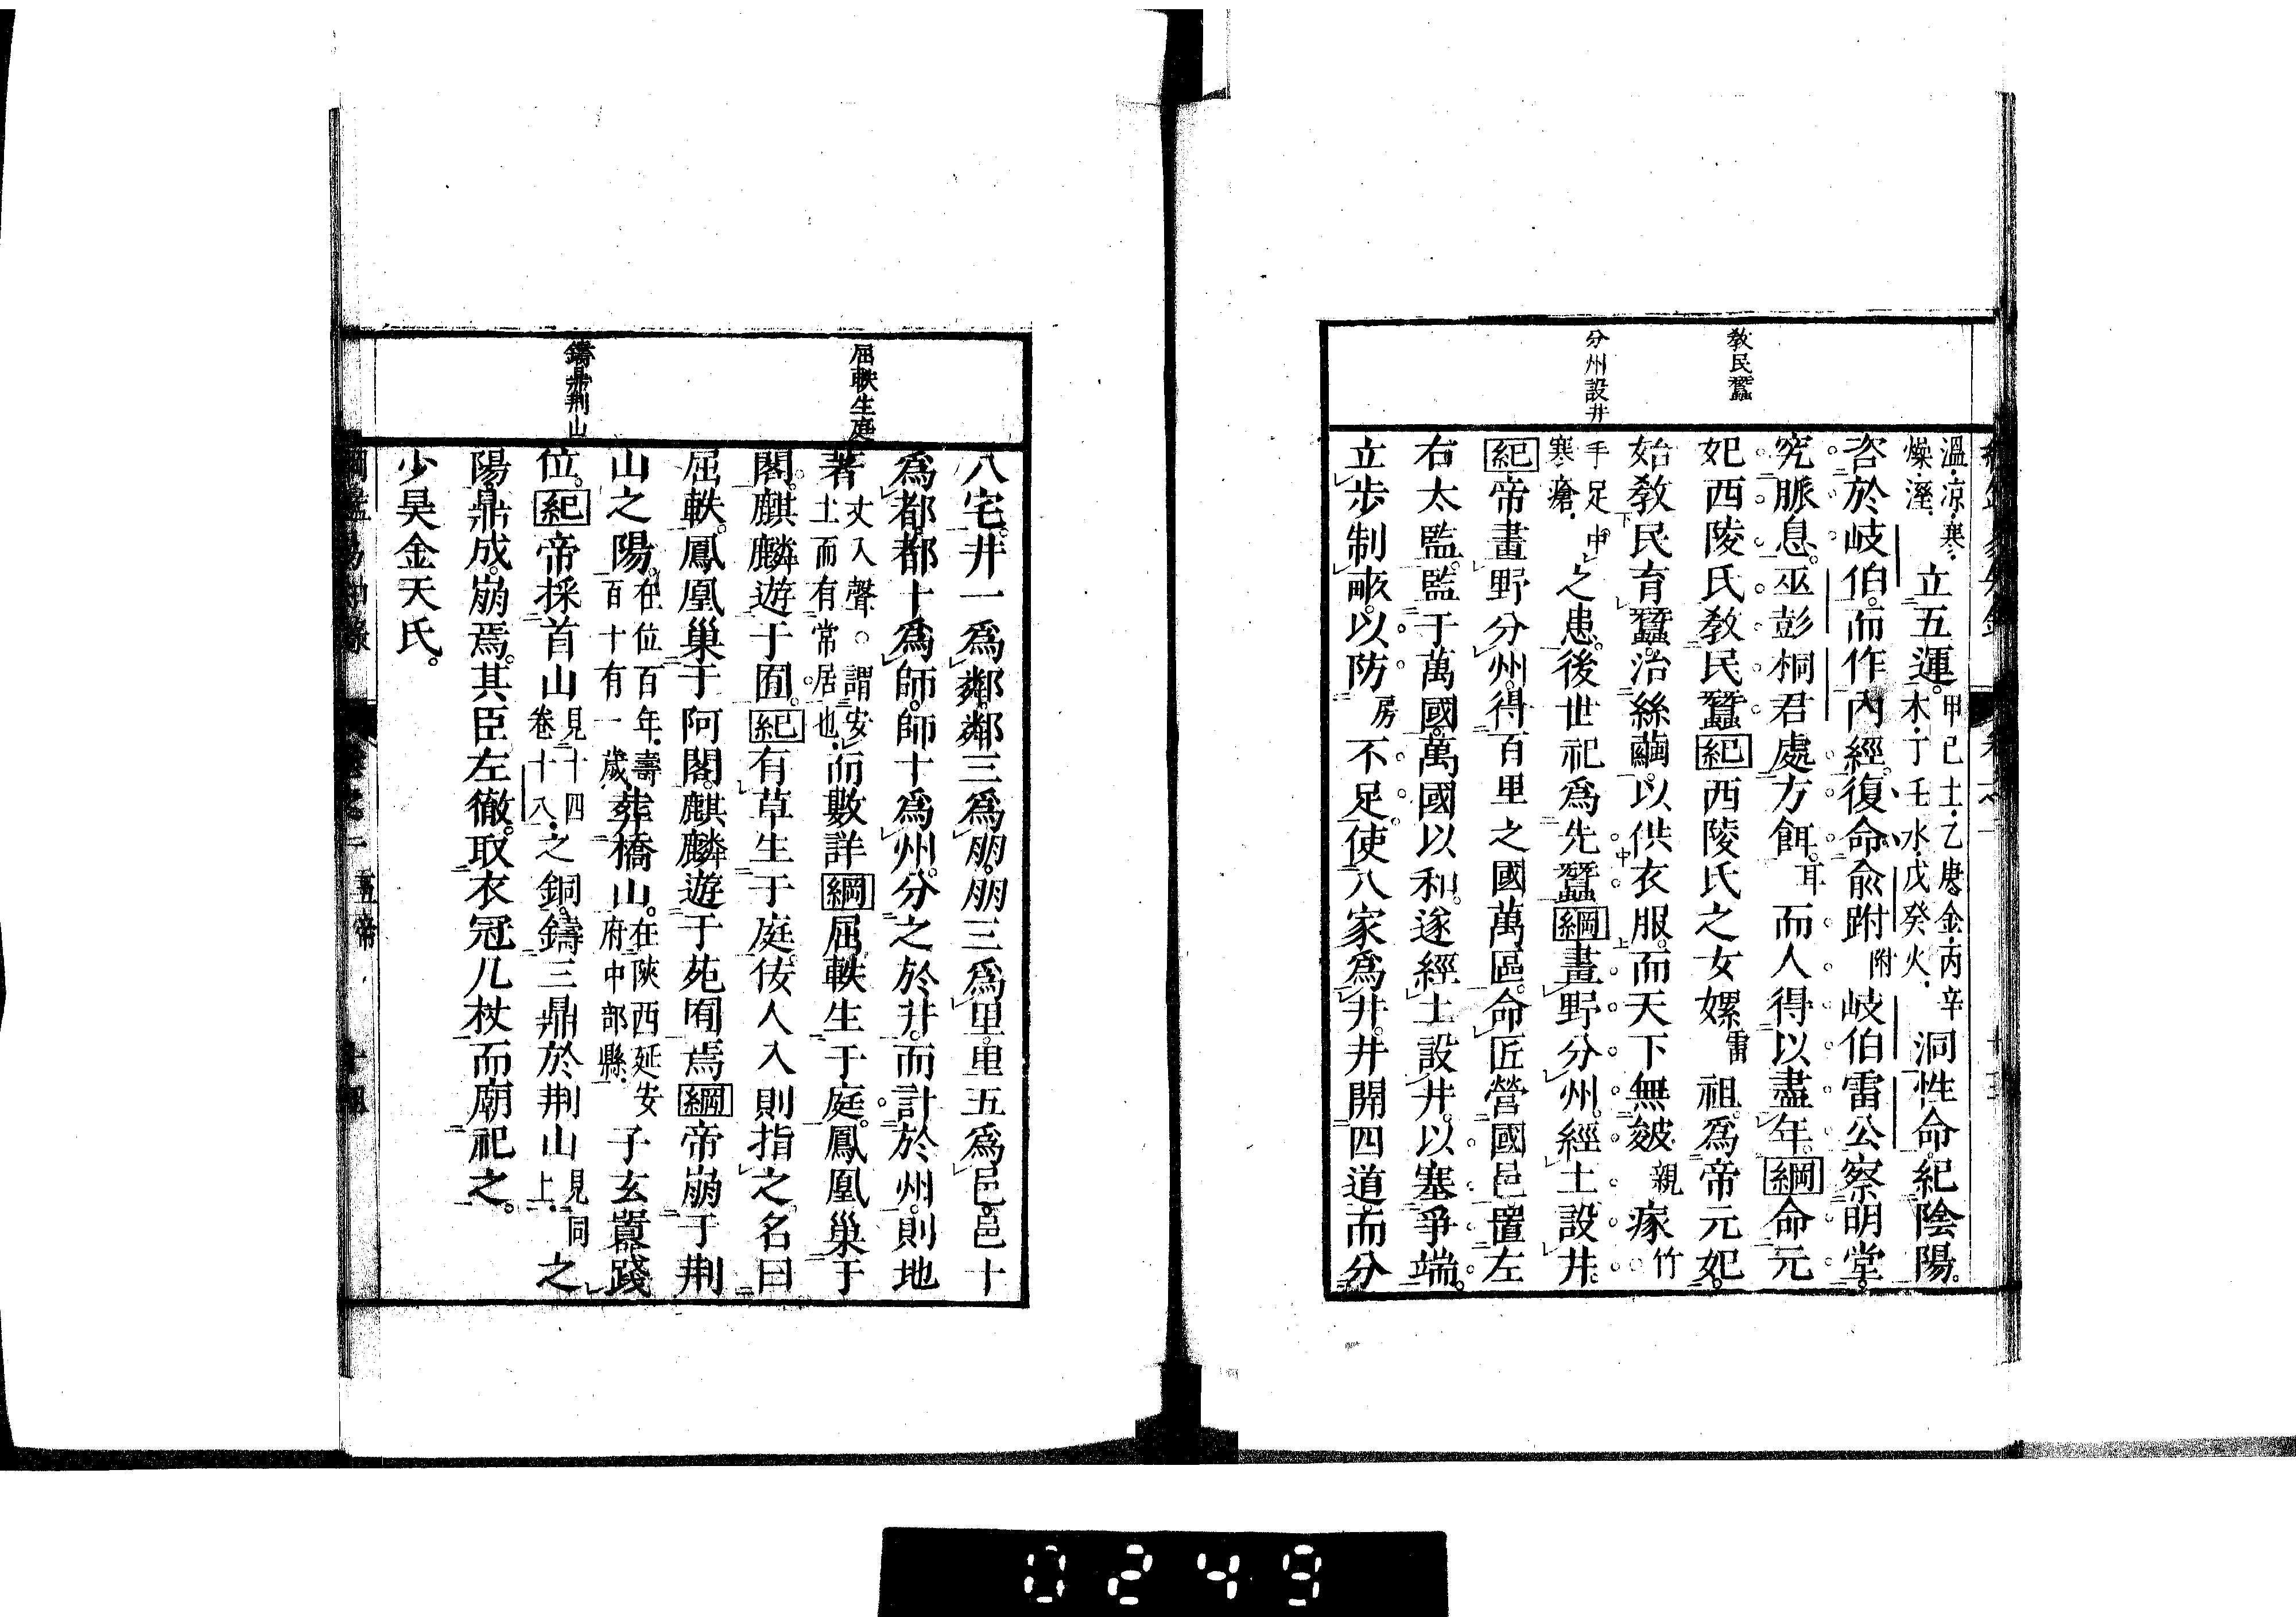 教民蠶
分州設井
溫凉寒
燥溼立五運甲己土乙庚金丙辛
木丁壬水戊癸火洞性命紀陰陽
咨於岐伯而作內經復命俞跗附岐伯雷公察明堂
究脈息巫彭桐君處方餌耳而人得以盡年綱命元
妃西陵氏敎民蠶紀西陵氏之女嫘雷祖爲帝元妃
始敎民育蠶治絲繭以供衣服而天下無皴親瘃竹
手足中
寒瘡之患後世祀爲先蠶綱畫野分州經土設井
紀帝畫野分州得百里之國萬區命匠營國邑置左
右太監監于萬國萬國以和遂經土設井以塞爭端
立步制畝以防房不足使八家爲井井開四道而分
屈軼生庭
鑄鼎荆山
八宅井一爲鄰鄰三爲朋朋三爲里里五爲邑邑十
爲都都十爲師師十爲州分之於井而計於州則地
著丈入聲謂安
土而有常居也而數詳綱屈軼生于庭鳳凰巢于
閣麒麟遊于囿紀有草生于庭佞人入則指之名曰
屈軼鳳凰巢于阿閣麒麟遊于苑囿焉綱帝崩于荆
山之陽在位百年壽
百十有一歲葬橋山在陝西延安
府中部縣子玄囂踐
位紀帝採首山見十四
卷十八之銅鑄三鼎於荆山見同
上之
陽鼎成崩焉其臣左徹取衣冠几杖而廟祀之
少昊金天氏
五帝
0249